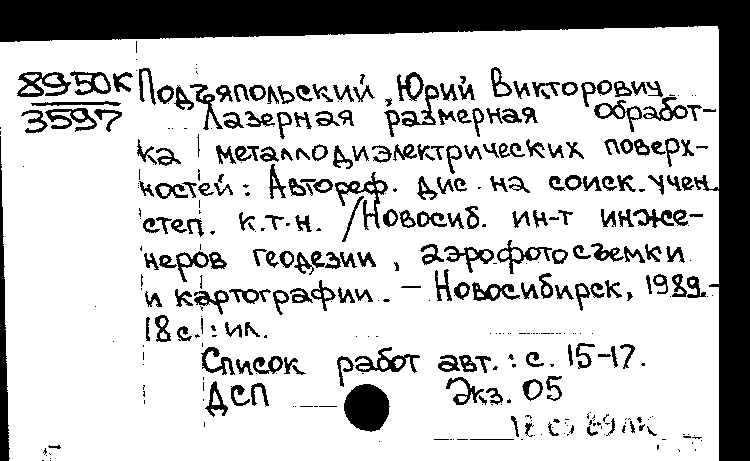 89-50К Подъяпольский, Юрий Викторович
3597 Лазерная размерная обработ-
ка металлодиэлектрических поверх-
ностей: Автореф. дис. на соиск. учен.
степ. к.т.н. /Новосиб. ин-т инже-
неров геодезии, аэрофотосъемки
и картографии. - Новосибирск, 1989.-
18 с.: ил.
Список работ авт.: с. 15-17.
ДСП Экз. 05